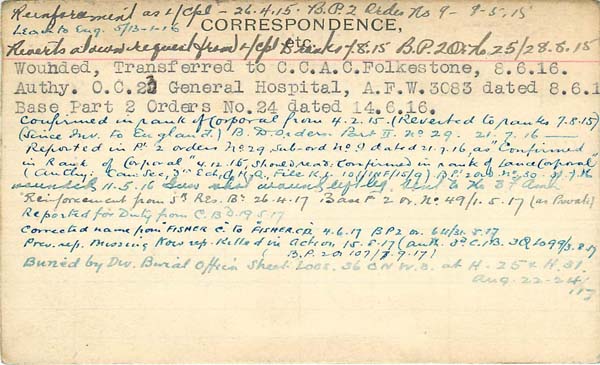 Reinforcement as L/Cpl - 26.4.15. B.P.2 Order No 9 - 9-5-15
CORRESPONDENCE,
Leave to Eng. 5/13-1-16
Reverts at own request from L/Cpl etc. Ranks 7.8.15 B.P.2 Or. No 25/28.8.15
Wounded, Transferred to C.C.A.C.Folkestone, 8.6.16.
Authy. O.C.23 General Hospital, A.F.W.3083 dated 8.6.1
Base Part 2 Orders No.24 dated 14.6.16.
Confirmed in rank of Corporal from 4.2.15. (Reverted to ranks 7.8.15)
(Since Inv. to England.) B.D. Orders. Part II. No 29. 21.7.16
Reported in Pt 2 orders No 29, Sub-ord No 9 dated 21.7.16, as "Confirmed
in Rank of Corporal" 4.12.15, should read: Confirmed in rank of Lance Corporal"
(Authy: Can. Sec, 3rd Ech, G.H.Q., File K.J. 101 B.P. 2 ord No 30
wounded 11.5.16 wound left leg. sent to the
Reinforcement from 5th Res. Bn 26-4-17 Base P 2 or. No 49/1.5.17 (as Private)
Reported for Duty from C.B.D. 19.5.17
Corrected name from "FISHER C" to "FISHER CA" 4.6.17 BP2 or. 64/31.5.17
Prev. rep. Missing Now rep. Killed in Action 15.8.17 (auth. 3rd C.I.B. 3Q1099/3.9.17
(B.P.2 or 107/7.9.17)
Buried by Div. Burial Officer Sheet Loos. 36 C N.W.3. at H. 25 d H.31.
Aug. 22-24/17